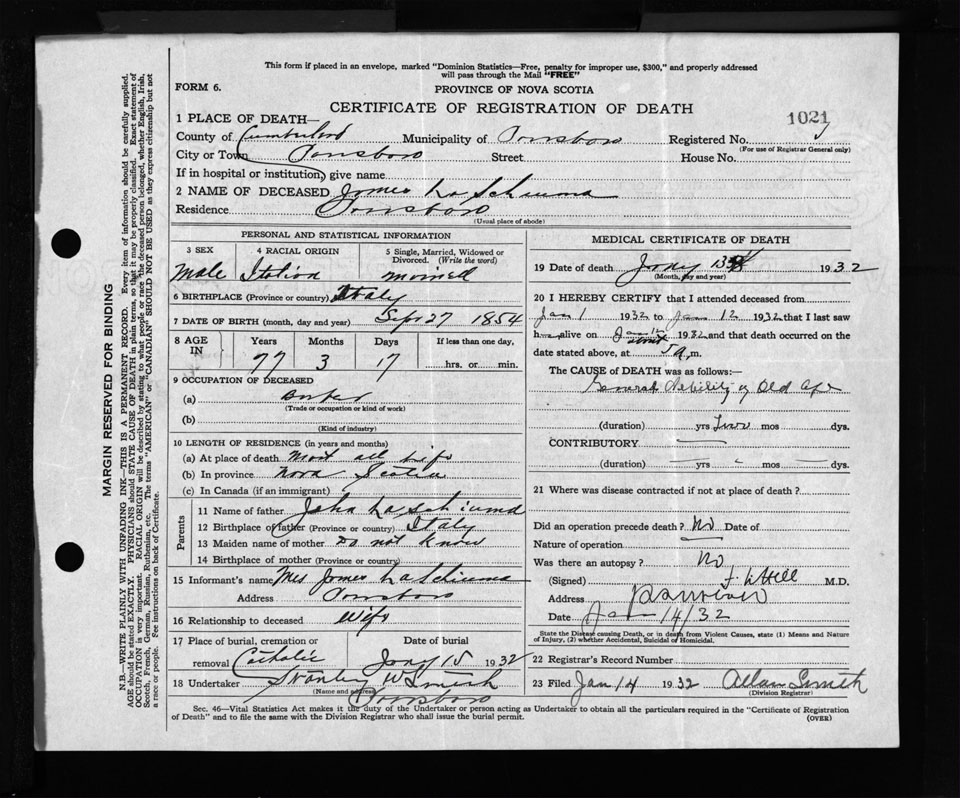 This form if placed in an envelope, marked "Dominion Statistics—Free, penalty for improper use, $300," and properly addressed
will pass through the Mail "FREE"
FORM 6.
PROVINCE OF NOVA SCOTIA
CERTIFICATE OF REGISTRATION OF DEATH
1021
1 PLACE OF DEATH—
County of Cumberland Municipality of Parrsboro Registered No.
(For use of Registrar General only)
City or Town Parrsboro Street House No.
If in hospital or institution, give name
2 NAME OF DECEASED James La Schiuma
Residence Parrsboro
(Usual place of abode)
PERSONAL AND STATISTICAL INFORMATION
3 SEX 4 RACIAL ORIGIN 5 Single, Married, Widowed or
Divorced. (Write the word)
Male Italian married
6 BIRTHPLACE (Province or country) Italy
7 DATE OF BIRTH (month, day and year) Sept 27 1854
8 AGE IN Years Months Days If less than one day,
77 3 17 hrs. or min.
9 OCCUPATION OF DECEASED
(a)
(Trade or occupation or kind of work)
(b)
(Kind of industry)
10 LENGTH OF RESIDENCE (in years and months)
(a) At place of death Most all life
(b) In province Nova Scotia
(c) In Canada (if an immigrant)
Parents
11 Name of father John La Schiuma
12 Birthplace of father (Province or country) Italy
13 Maiden name of mother Do not know
14 Birthplace of mother (Province or country)
15 Informant's name Mrs James La Schiuma
Address Parrsboro
16 Relationship to deceased Wife
17 Place of burial, cremation or Date of burial
removal Catholic Jany 15 1932
18 Undertaker Stanley W Smith
(Name and address) Parrsboro
MEDICAL CERTIFICATE OF DEATH
19 Date of death Jany 13 1932
(Month, day and year)
20 I HEREBY CERTIFY that I attended deceased from
Jan 1 1932 to Jan 12 1932 that I last saw
h alive on Jan 12 1932 and that death occurred on the
date stated above, at 5 a. m.
The CAUSE of DEATH was as follows:—
General Debility of Old Age
(duration) yrs Two mos dys.
CONTRIBUTORY
(duration) yrs mos dys.
21 Where was disease contracted if not at place of death?
Did an operation precede death? No Date of
Nature of operation
Was there an autopsy? No
(Signed) M.D.
Address
Date Jan 14/32
State the Disease causing Death, or in death from Violent Causes, state (1) Means and Nature
of Injury, (2) whether Accidental, Suicidal or Homicidal.
22 Registrar's Record Number
23 Filed Jan 14 1932 Allan Smith
(Division Registrar)
Sec. 46—Vital Statistics Act makes it the duty of the Undertaker or person acting as Undertaker to obtain all the particulars required in the "Certificate of Registration
of Death" and to file the same with the Division Registrar who shall issue the burial permit.
(OVER)
MARGIN RESERVED FOR BINDING
N.B.—WRITE PLAINLY WITH UNFADING INK—THIS IS A PERMANENT RECORD. Every item of information should be carefully supplied.
AGE should be stated EXACTLY. PHYSICIANS should STATE CAUSE OF DEATH in plain terms, so that it may be properly classified. Exact statement of
OCCUPATION is very important. RACIAL ORIGIN will be described by stating to what people or race the deceased person belonged, whether English, Irish,
Scotch, French, German, Russian, Ruthenian, etc. The terms "AMERICAN" or "CANADIAN" SHOULD NOT BE USED as they express citizenship but not
a race or people. Fee instructions on back of Certificate.